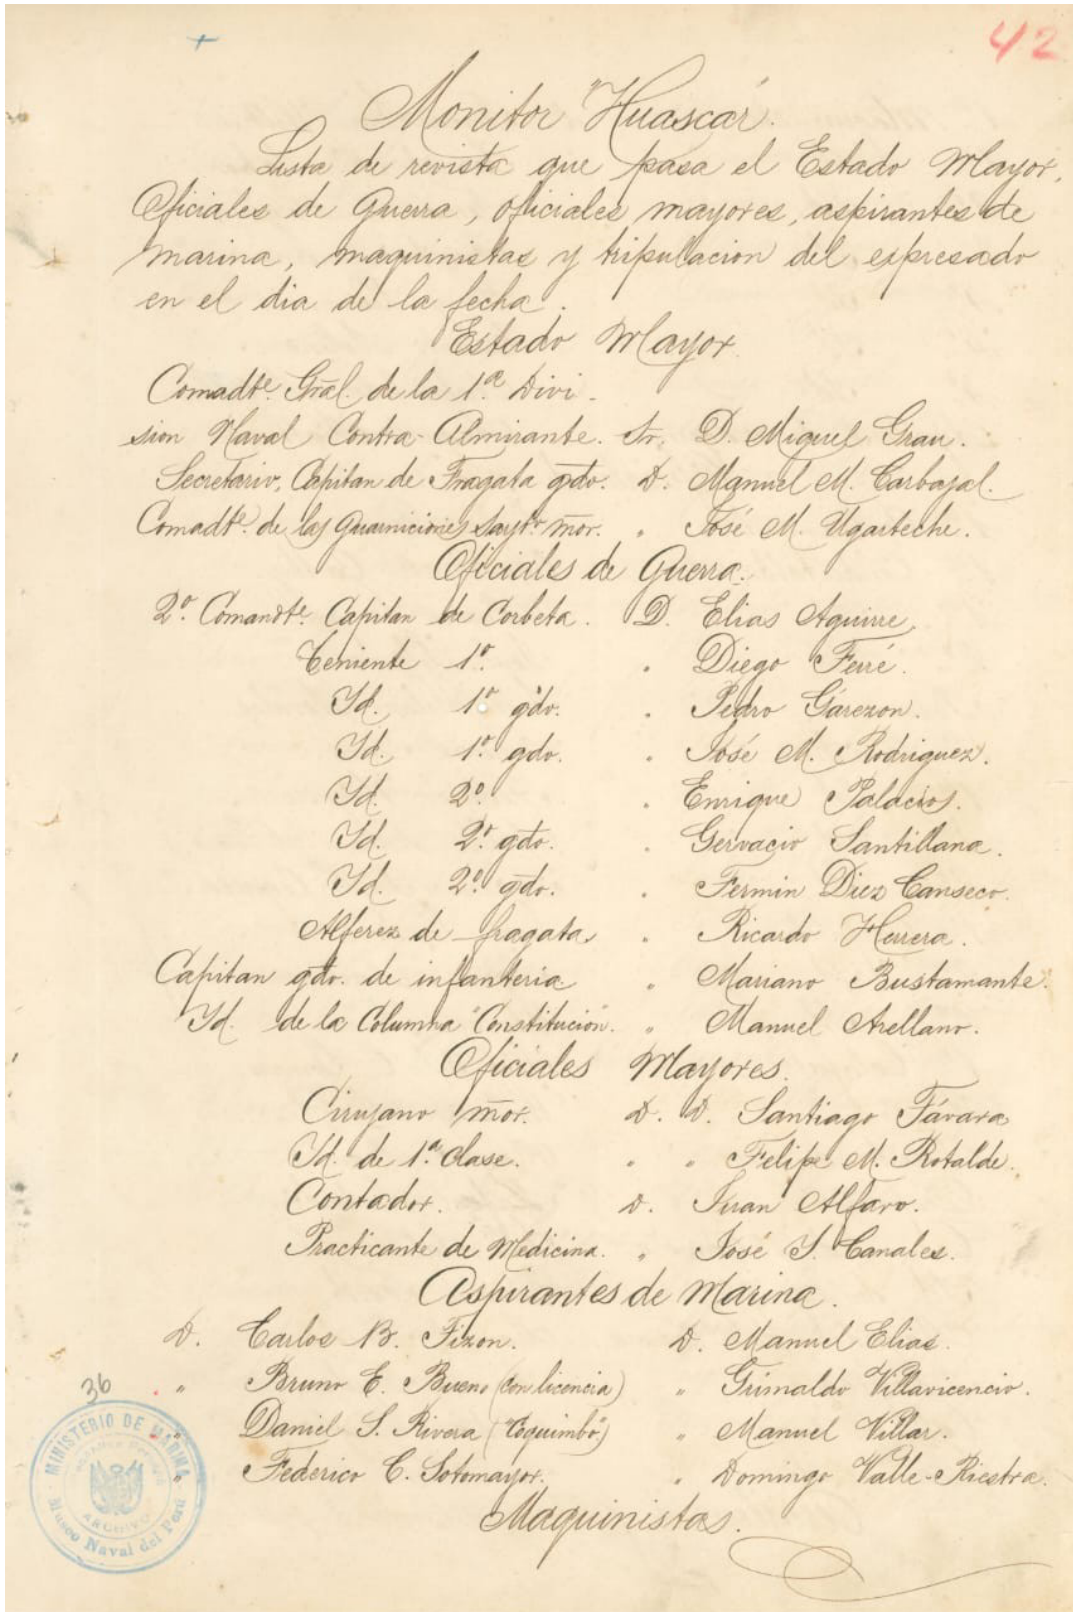 42
Monitor "Huascar.
Lista de revista que pasa el Estado Mayor,
Oficiales de Guerra, oficiales mayores, aspirantes de
marina, maquinistas y tripulacion del expresado
en el dia de la fecha.
Estado Mayor
Comadte. Gral. de la 1.ª Divi-
sion Naval Contra-Almirante. Sr. D. Miguel Grau.
Secretario, Capitan de Fragata gdo. D. Manuel M. Carbajal.
Comadte. de las Guarniciones Sargto. mor. " José M. Ugarteche.
Oficiales de Guerra.
2º. Comandte. Capitan de Corbeta. D. Elias Aguirre.
Teniente 1º. " Diego Ferré.
Id. 1º gdo. " Pedro Gárezon.
Id. 1º gdo. " José M. Rodriguez.
Id. 2º. " Enrique Palacios.
Id. 2º. gdo. " Gervacio Santillana.
Id. 2º. gdo. " Fermin Diez Canseco.
Alferez de fragata " Ricardo Herrera.
Capitan gdo. de infanteria " Mariano Bustamante.
Id. de la Columna "Constitucion". " Manuel Arellano.
Oficiales Mayores.
Cirujano mor. D. D. Santiago Távara
Id. de 1.ª clase. " " Felipe M. Rotalde.
Contador. D. Juan Alfaro.
Practicante de Medicina. " José I. Canales.
Aspirantes de Marina.
D. Carlos B. Tizon. D. Manuel Elias.
" Bruno E. Bueno (con licencia) " Grimaldo Villavicencio.
" Daniel S. Rivera ("Coquimbo") " Manuel Villar.
" Federico C. Sotomayor. " Domingo Valle-Riestra.
Maquinistas.
36
MINISTERIO DE MARINA
ARCHIVO
Museo Naval del Perú